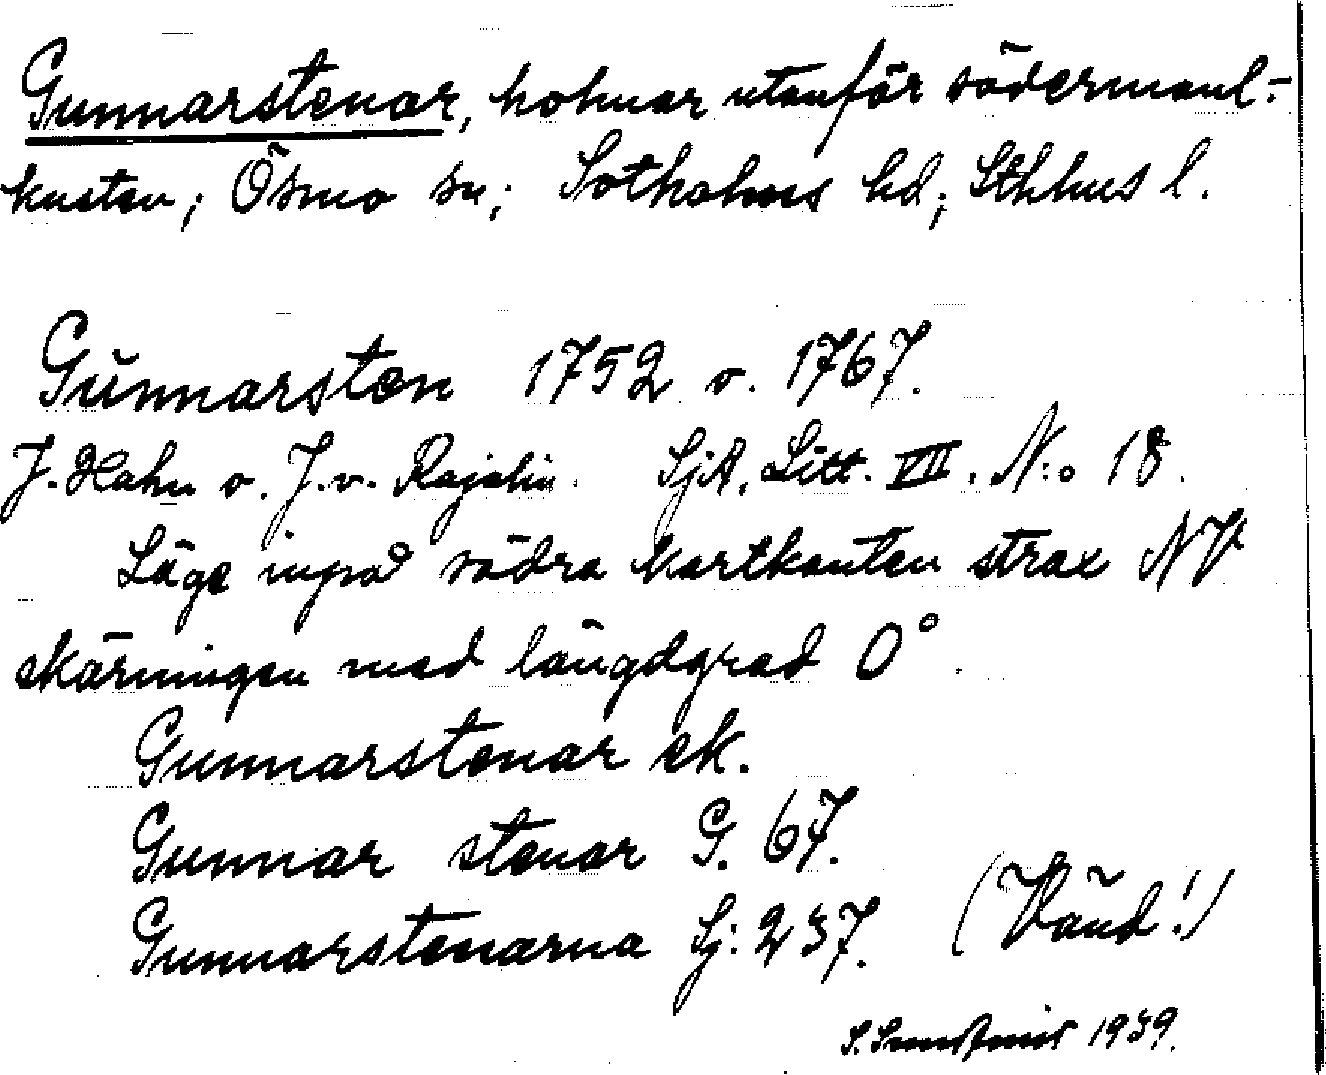 Gunnarstenar, holmar utanför södermanl.-
kusten; Ösmo sn; Sotholms hd; Sthlms l.
Gunnarsten 1752 o. 1767.
J. Hahn o. J. v. Rajalin. SjA. Litt. VII. N:o 18.
Läge inpå södra kartkanten strax NV
skärningen med längdgrad 0°.
Gunnarstenar ek.
Gunnar stenar G. 67.
Gunnarstenarna Sj. 237. (Vänd!)
S. 1939.